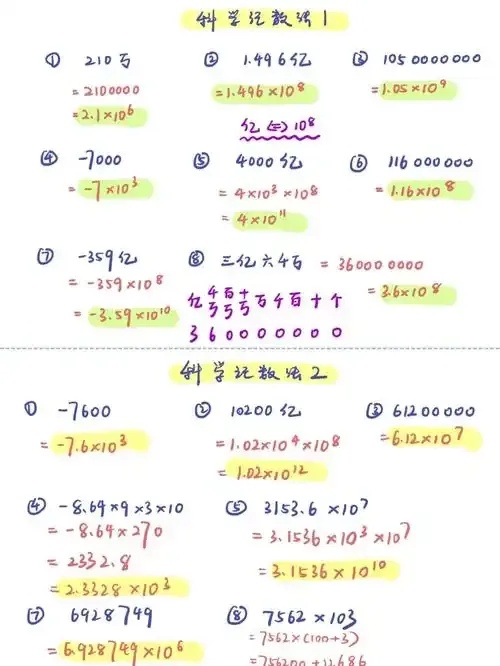 科学记数法1
① 210万
= 2100000
= 2.1×10⁶
② 1.496亿
= 1.496×10⁸
亿 <=> 10⁸
③ 1050000000
= 1.05×10⁹
④ -7000
= -7×10³
⑤ 4000亿
= 4×10³×10⁸
= 4×10¹¹
⑥ 116000000
= 1.16×10⁸
⑦ -359亿
= -359×10⁸
= -3.59×10¹⁰
⑧ 三亿六千万 = 360000000
= 3.6×10⁸
亿 千万 百万 十万 万 千 百 十 个
3 6 0 0 0 0 0 0 0
科学记数法2
① -7600
= -7.6×10³
② 10200亿
= 1.02×10⁴×10⁸
= 1.02×10¹²
③ 61200000
= 6.12×10⁷
④ -8.64×9×3×10
= -8.64×270
= 2332.8
= 2.3328×10³
⑤ 3153.6×10⁷
= 3.1536×10³×10⁷
= 3.1536×10¹⁰
⑦ 6928749
= 6.928749×10⁶
⑧ 7562×103
= 7562×(100+3)
= 756200+22686